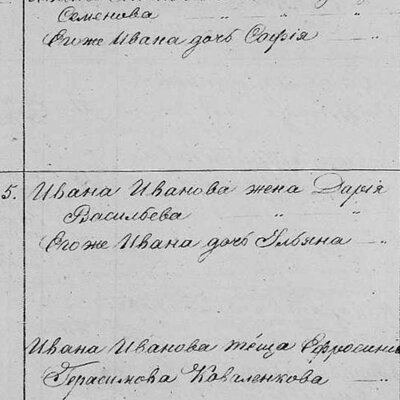 Семенова
Его же Ивана дочь Софія
5. Ивана Иванова жена Дарія
Васильева " "
Его же Ивана дочь Ульяна
Ивана Иванова тёща Ефросинія
Герасимова Коваленкова